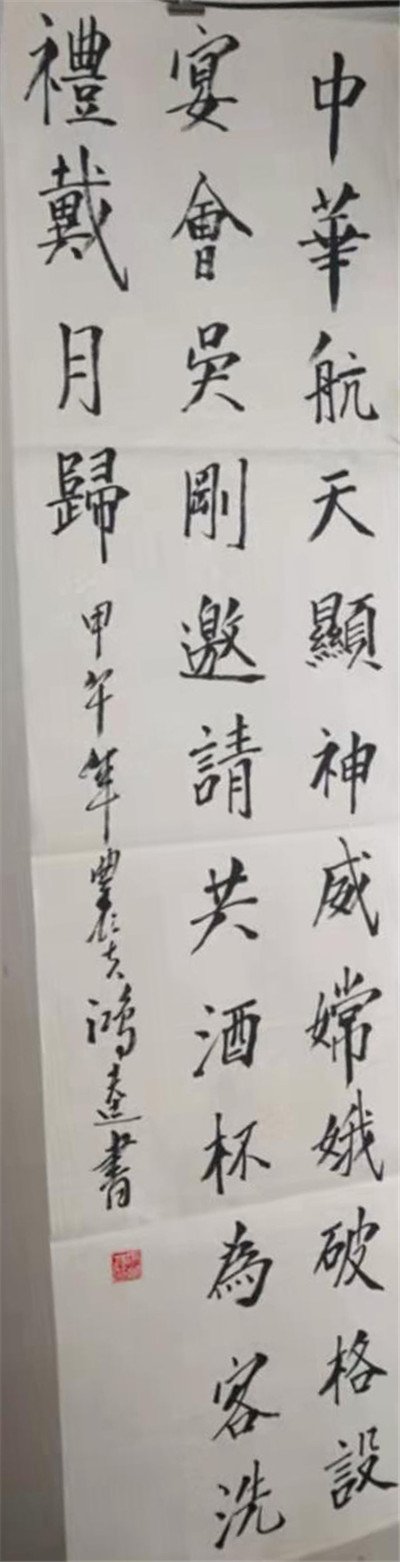 中華航天顯神威嫦娥破格設
宴會吳剛邀請共酒杯為客洗
禮戴月歸
甲午年農夫鴻達書